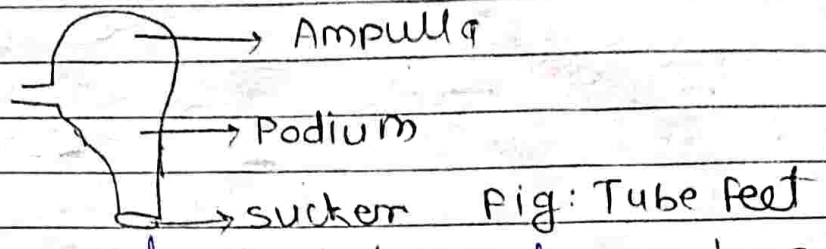 Ampulla
Podium
sucker Fig: Tube feet